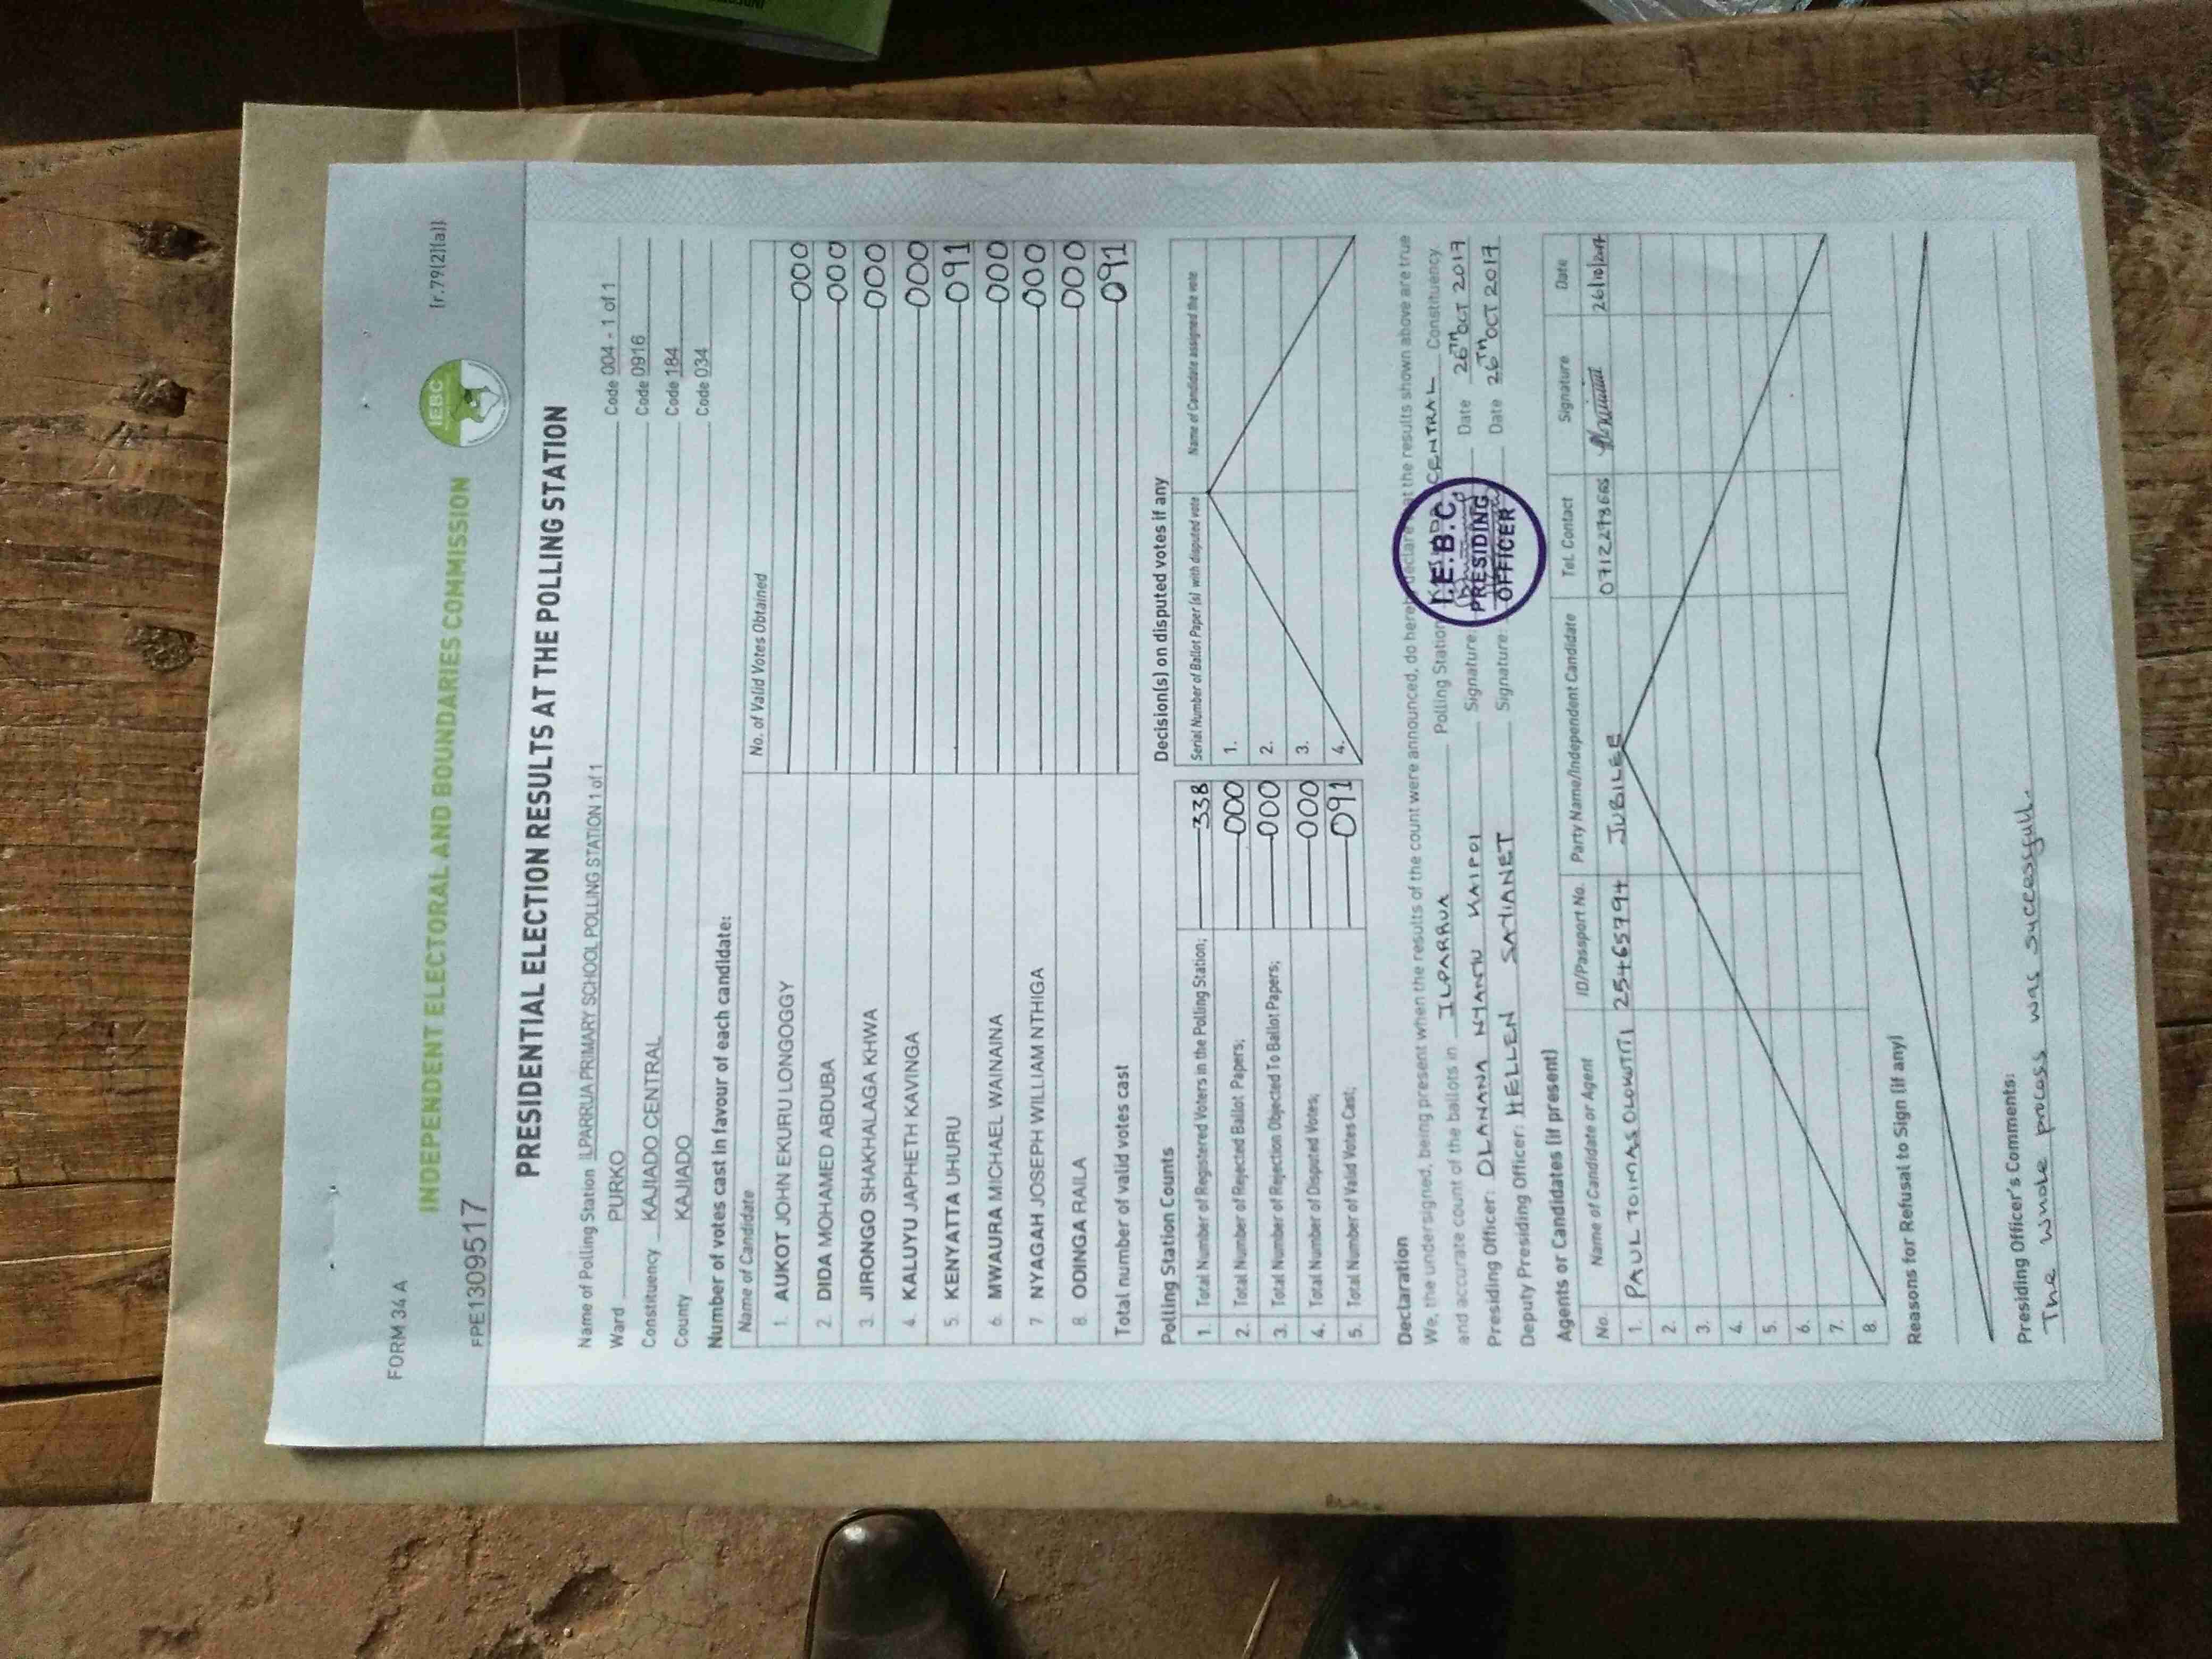 FORM 34 A
[r.79(2)(a)]
INDEPENDENT ELECTORAL AND BOUNDARIES COMMISSION
IEBC
FPE1309517
PRESIDENTIAL ELECTION RESULTS AT THE POLLING STATION
Name of Polling Station ILPARRUA PRIMARY SCHOOL POLLING STATION 1 of 1 Code 004 - 1 of 1
Ward PURKO Code 0916
Constituency KAJIADO CENTRAL Code 184
County KAJIADO Code 034
Number of votes cast in favour of each candidate:
Name of Candidate No. of Valid Votes Obtained
1. AUKOT JOHN EKURU LONGOGGY 000
2. DIDA MOHAMED ABDUBA 000
3. JIRONGO SHAKHALAGA KHWA 000
4. KALUYU JAPHETH KAVINGA 000
5. KENYATTA UHURU 091
6. MWAURA MICHAEL WAINAINA 000
7 NYAGAH JOSEPH WILLIAM NTHIGA 000
8. ODINGA RAILA 000
Total number of valid votes cast 091
Polling Station Counts
1. Total Number of Registered Voters in the Polling Station; 338
2. Total Number of Rejected Ballot Papers; 000
3. Total Number of Rejection Objected To Ballot Papers; 000
4. Total Number of Disputed Votes; 000
5. Total Number of Valid Votes Cast; 091
Decision(s) on disputed votes if any
Serial Number of Ballot Paper (s) with disputed vote Name of Candidate assigned the vote
1.
2.
3.
4.
Declaration
We, the undersigned, being present when the results of the count were announced, do hereby declare that the results shown above are true
and accurate count of the ballots in ILPARRUA Polling Station CENTRAL Constituency.
Presiding Officer: OLANANA Signature: Date 26TH OCT 2017
Deputy Presiding Officer: HELLEN Signature: Date 26TH OCT 2017
I.E.B.C.
PRESIDING
OFFICER
Agents or Candidates (if present)
No. Name of Candidate or Agent ID/Passport No. Party Name/Independent Candidate Tel. Contact Signature Date
1. PAUL 25465794 JUBILEE 26/10/2017
2.
3.
4.
5.
6.
7.
8.
Reasons for Refusal to Sign (if any)
Presiding Officer's Comments:
The whole process was sucessfull.